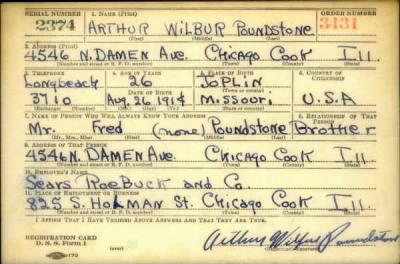 SERIAL NUMBER 1. NAME (Print) ORDER NUMBER
2374 ARTHUR WILBUR POUNDSTONE 3131
(First) (Middle) (Last)
2. ADDRESS (Print)
4546 N. DAMEN AVE. CHICAGO COOK ILL.
(Number and street or R. F. D. number) (Town) (County) (State)
3. TELEPHONE 4. AGE IN YEARS 5. PLACE OF BIRTH 6. COUNTRY OF CITIZENSHIP
Longbeach 26 JOPLIN
(Exchange) DATE OF BIRTH (Town or county)
3710 Aug. 26, 1914 Missoori U.S.A
(Number) (Mo.) (Day) (Yr.) (State or country)
7. NAME OF PERSON WHO WILL ALWAYS KNOW YOUR ADDRESS 8. RELATIONSHIP OF THAT PERSON
Mr. Fred (none) Poundstone Brother
(Mr., Mrs., Miss) (First) (Middle) (Last)
9. ADDRESS OF THAT PERSON
4546 N. DAMEN AVE. CHICAGO COOK Ill.
(Number and street or R. F. D. number) (Town) (County) (State)
10. EMPLOYER'S NAME
Sears RoeBuck and Co.
11. PLACE OF EMPLOYMENT OR BUSINESS
825 S. HOLMAN St. Chicago Cook Ill.
(Number and street or R. F. D. number) (Town) (County) (State)
I AFFIRM THAT I HAVE VERIFIED ABOVE ANSWERS AND THAT THEY ARE TRUE.
REGISTRATION CARD
D. S. S. Form 1 Arthur Wilbur Poundstone